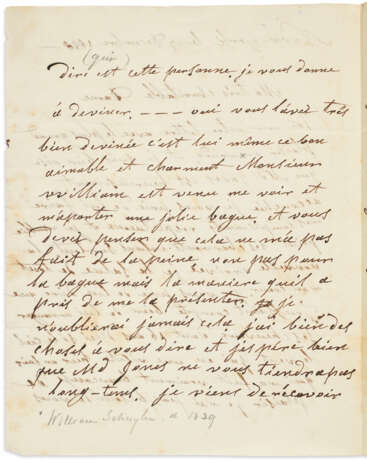 (qui)
dire est cette personne, je vous donne
á deviner. - - - oui vous l'avez trés
bien devinée c'est lui même ce bon
aimable et charment Monsieur
William est venue me voir et
m'aporter une jolie bague, et vous
devez penser que cela ne m'ée pas
fait de la peine non pas pour
la bague mais la maniere qu'il a
pris de me la présenter. je je
noublierai jamais cela j'ai bien des
choses á vous dire et j'espére bien
que Md Jones ne vous tiendra pas
long-tems. je viens de récevoir
* William Schuyler d 1839